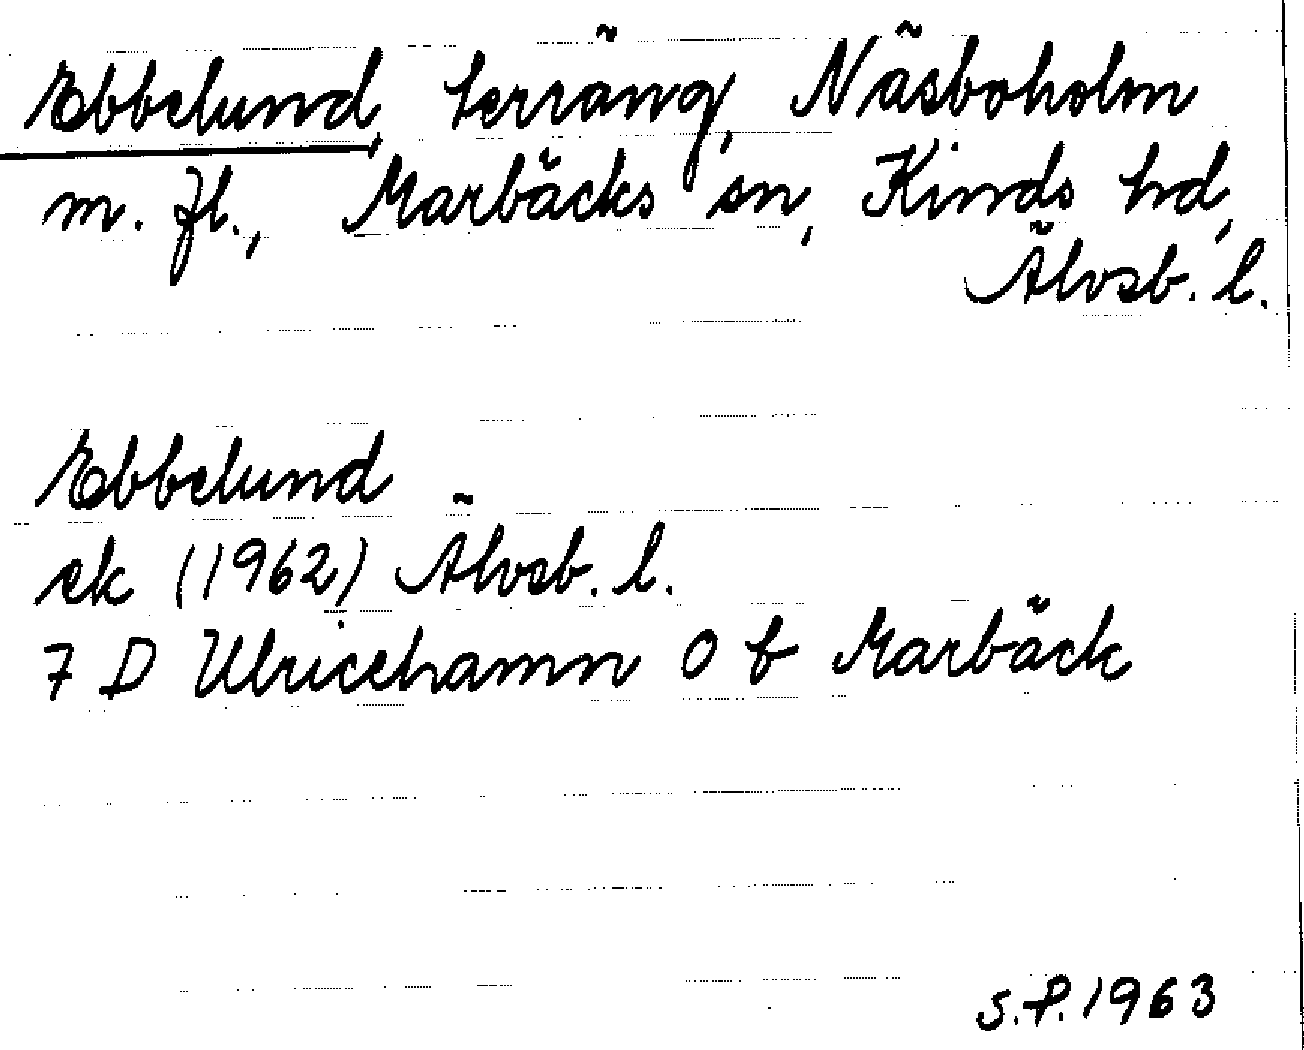 Ebbelund, terräng, Näsboholm
m. fl., Marbäcks sn, Kinds hd,
Älvsb. l.
Ebbelund
ek (1962) Älvsb. l.
7 D Ulricehamn 0 b Marbäck
S.P. 1963